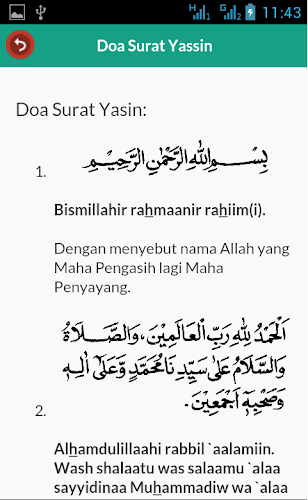 11:43
Doa Surat Yassin
Doa Surat Yasin:
1.
بِسْمِ اللهِ الرَّحْمٰنِ الرَّحِيْمِ
Bismillahir rahmaanir rahiim(i).
Dengan menyebut nama Allah yang
Maha Pengasih lagi Maha
Penyayang.
2.
اَلْحَمْدُ لِلّٰهِ رَبِّ الْعَالَمِيْنَ، وَالصَّلَاةُ
وَالسَّلَامُ عَلٰى سَيِّدِنَا مُحَمَّدٍ وَّعَلٰى اٰلِهٖ
وَصَحْبِهٖٓ اَجْمَعِيْنَ.
Alhamdulillaahi rabbil `aalamiin.
Wash shalaatu was salaamu `alaa
sayyidinaa Muhammadiw wa `alaa